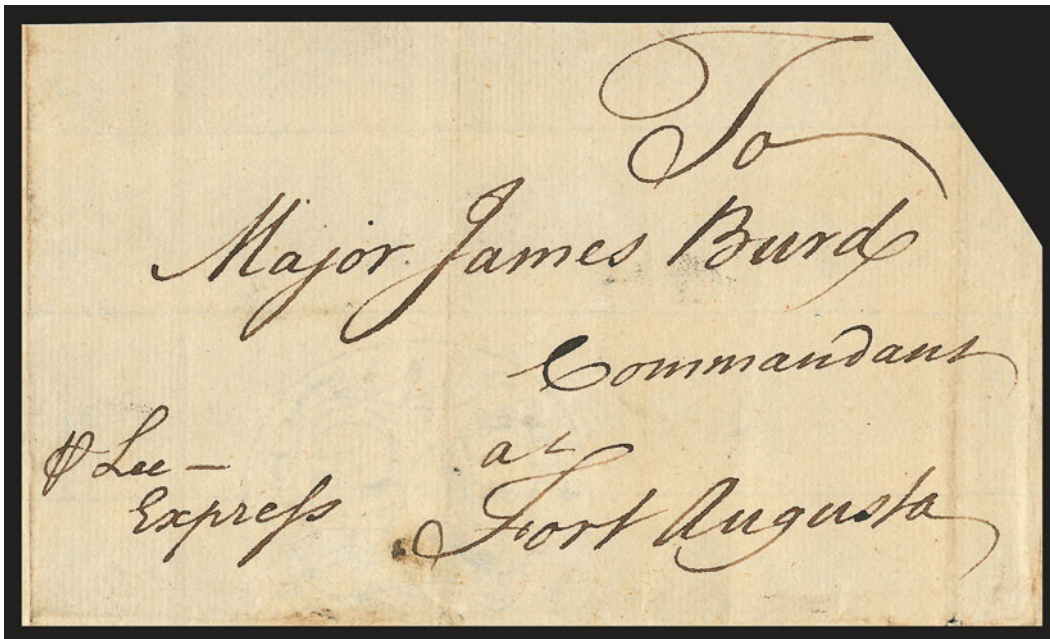 To
Major James Burd
Commandant
at
Fort Augusta
⅌ Lee —
Expreſs